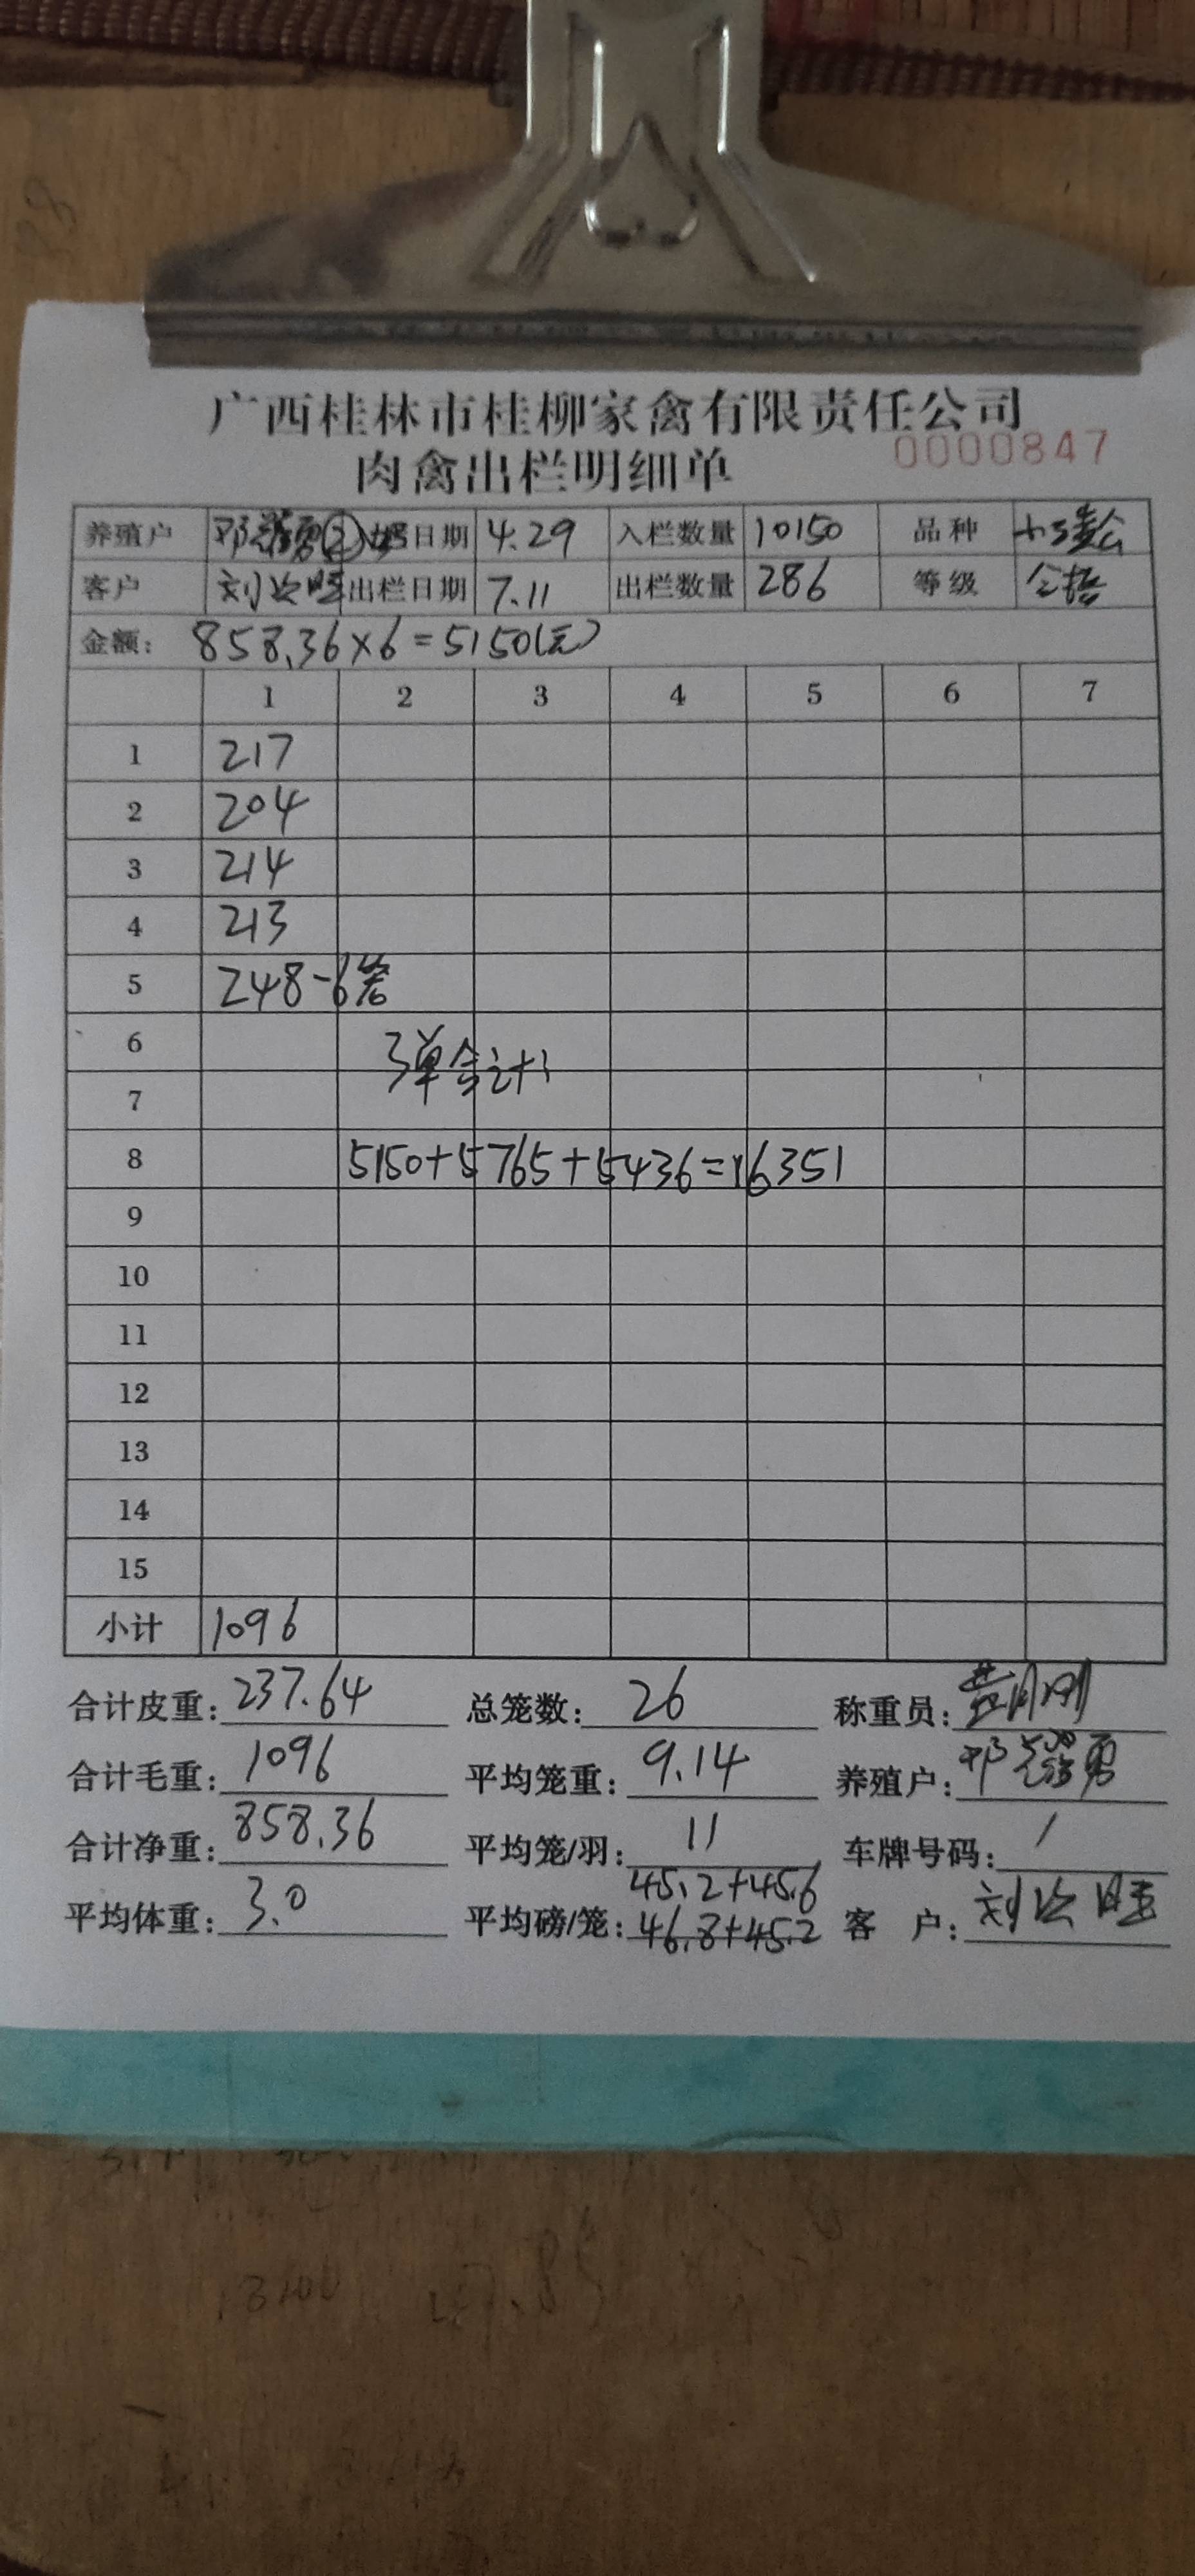 广西桂林市桂柳家禽有限责任公司
肉禽出栏明细单 0000847
养殖户 邓 勇② 日期 4.29 入栏数量 10150 品种
客户 刘 出栏日期 7.11 出栏数量 286 等级 合格
金额: 858.36×6=5150(元)
1 2 3 4 5 6 7
1 217
2 204
3 214
4 213
5 248-6笼
6
3单合计:
7
8 5150+5765+5436=16351
9
10
11
12
13
14
15
小计 1096
合计皮重: 237.64 总笼数: 26 称重员:
合计毛重: 1096 平均笼重: 9.14 养殖户: 邓 勇
合计净重: 858.36 平均笼/羽: 11 车牌号码: /
45.2+45.6
平均体重: 3.0 平均磅/笼: 46.8+45.2 客 户: 刘